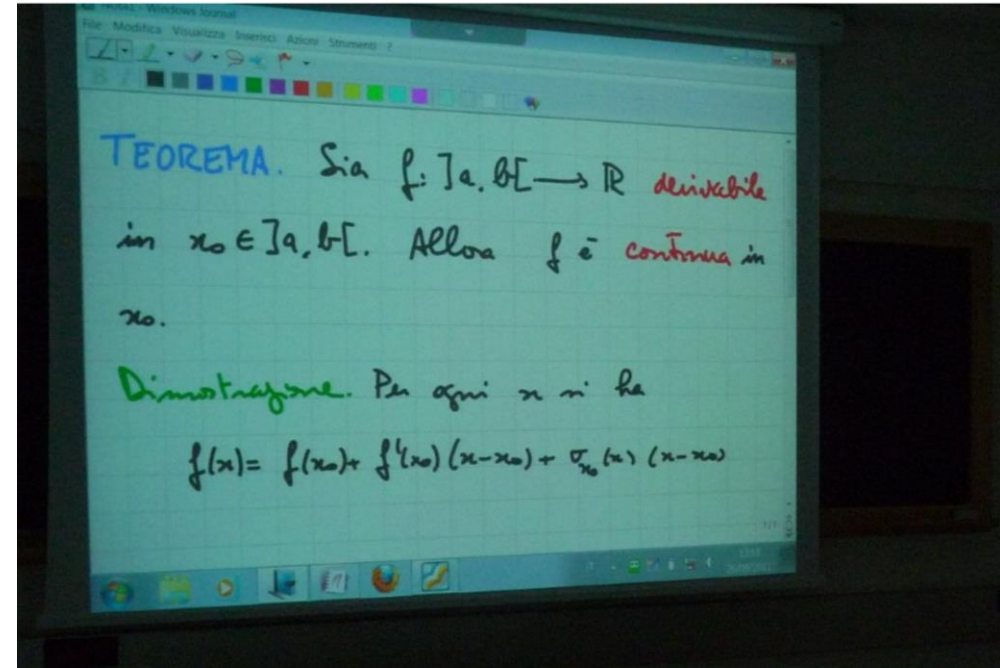 Windows Journal
File Modifica Visualizza Inserisci Azioni Strumenti ?
TEOREMA. Sia f: ]a,b[ → ℝ derivabile
in x₀ ∈ ]a,b[. Allora f è continua in
x₀.
Dimostrazione. Per ogni x si ha
f(x) = f(x₀) + f'(x₀) (x-x₀) + σₓ₀(x) (x-x₀)